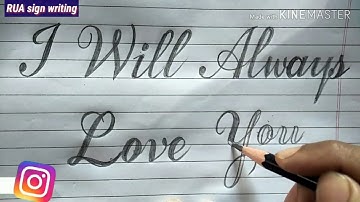 RUA sign writing
Made with KINEMASTER
I Will Always
Love You